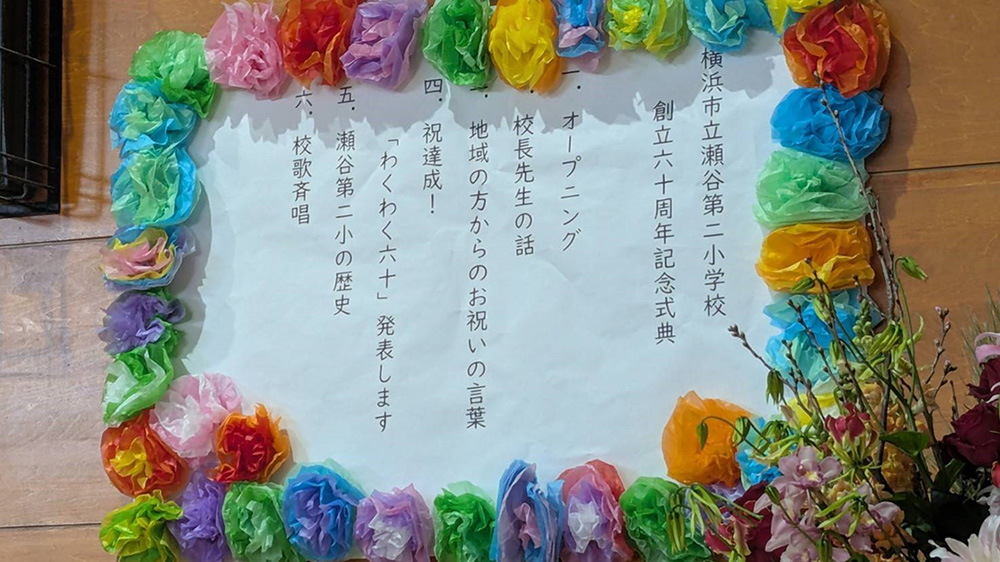 横浜市立瀬谷第二小学校
創立六十周年記念式典
一．オープニング
校長先生の話
地域の方からのお祝いの言葉
四．祝達成！
「わくわく六十」発表します
五．瀬谷第二小の歴史
六．校歌斉唱